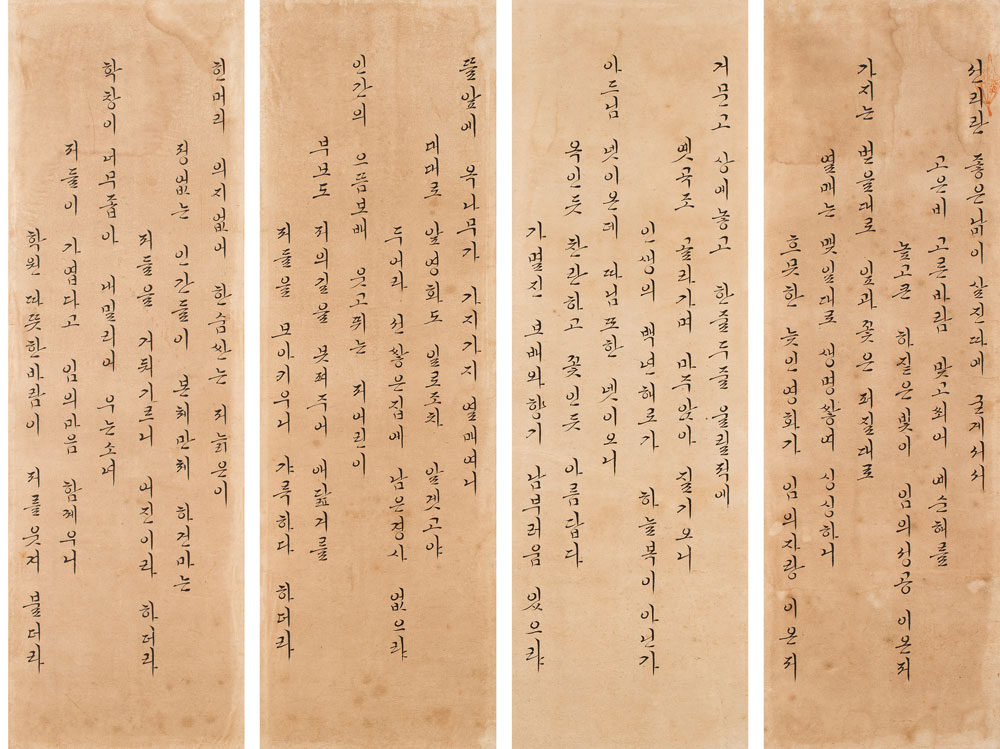 좋은낡이 살진따에 굳게서서
고은비 고른바람 맞고쐬어 예순해를
높고큰 임의성공 이온저
가지는 벋을대로 잎과꽃은 퍼질대로
열매는 맺일대로 생명쌓여 싱싱하니
흐뭇한 늦인영화가 임의자랑 이온저
거문고 상에놓고 한줄두줄 울릴적에
옛곡조 골라가며 마주앉아 즐기오니
인생의 백년해로가 하늘복이 아닌가
아드님 넷이온데 따님또한 넷이오니
옥인듯 찬란하고 꽃인듯 아름답다
가멸진 보배와향기 남부러움 있으랴
뜰앞에 옥나무가 가지가지 열매여니
대대로 알영화도 일로조차 알겟고야
두어라 선쌓은집에 남은경사 없으랴
인간의 으뜸보배 웃고뛰는 저어린이
부모도 저의길을 못펴주어 애닯거를
저들을 보아키우니 갸륵하다 하더라
힌머리 의지없어 한숨쉬는 저늙은이
정없는 인간들이 본체만체 하건마는
저들을 거둬기르니 어진이라 하더라
학창이 너무좁아 내밀리어 우는소녀
저들이 가엽다고 임의마음 함께우니
학원 따뜻한바람이 저를웃겨 불더라